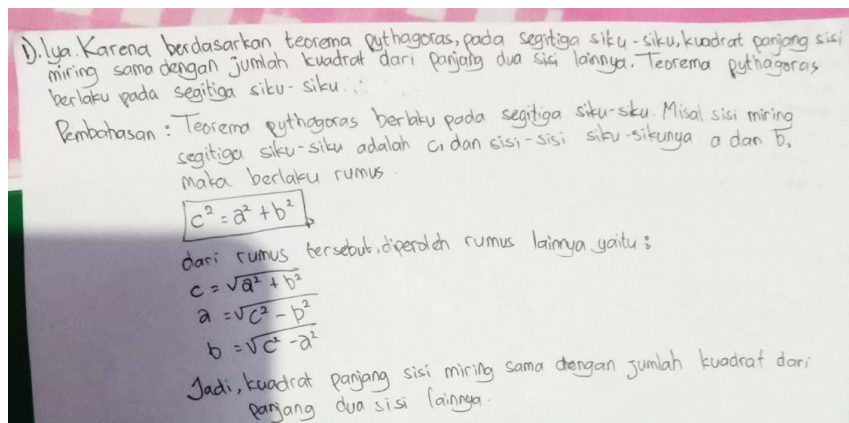 1). Iya. Karena berdasarkan teorema pythagoras, pada segitiga siku-siku, kuadrat panjang sisi
miring sama dengan jumlah kuadrat dari panjang dua sisi lainnya. Teorema pythagoras
berlaku pada segitiga siku-siku.
Pembahasan : Teorema pythagoras berlaku pada segitiga siku-siku. Misal sisi miring
segitiga siku-siku adalah c, dan sisi-sisi siku-sikunya a dan b,
maka berlaku rumus.
c² = a² + b²
dari rumus tersebut, diperoleh rumus lainnya yaitu :
c = √a² + b²
a = √c² - b²
b = √c² - a²
Jadi, kuadrat panjang sisi miring sama dengan jumlah kuadrat dari
panjang dua sisi lainnya.